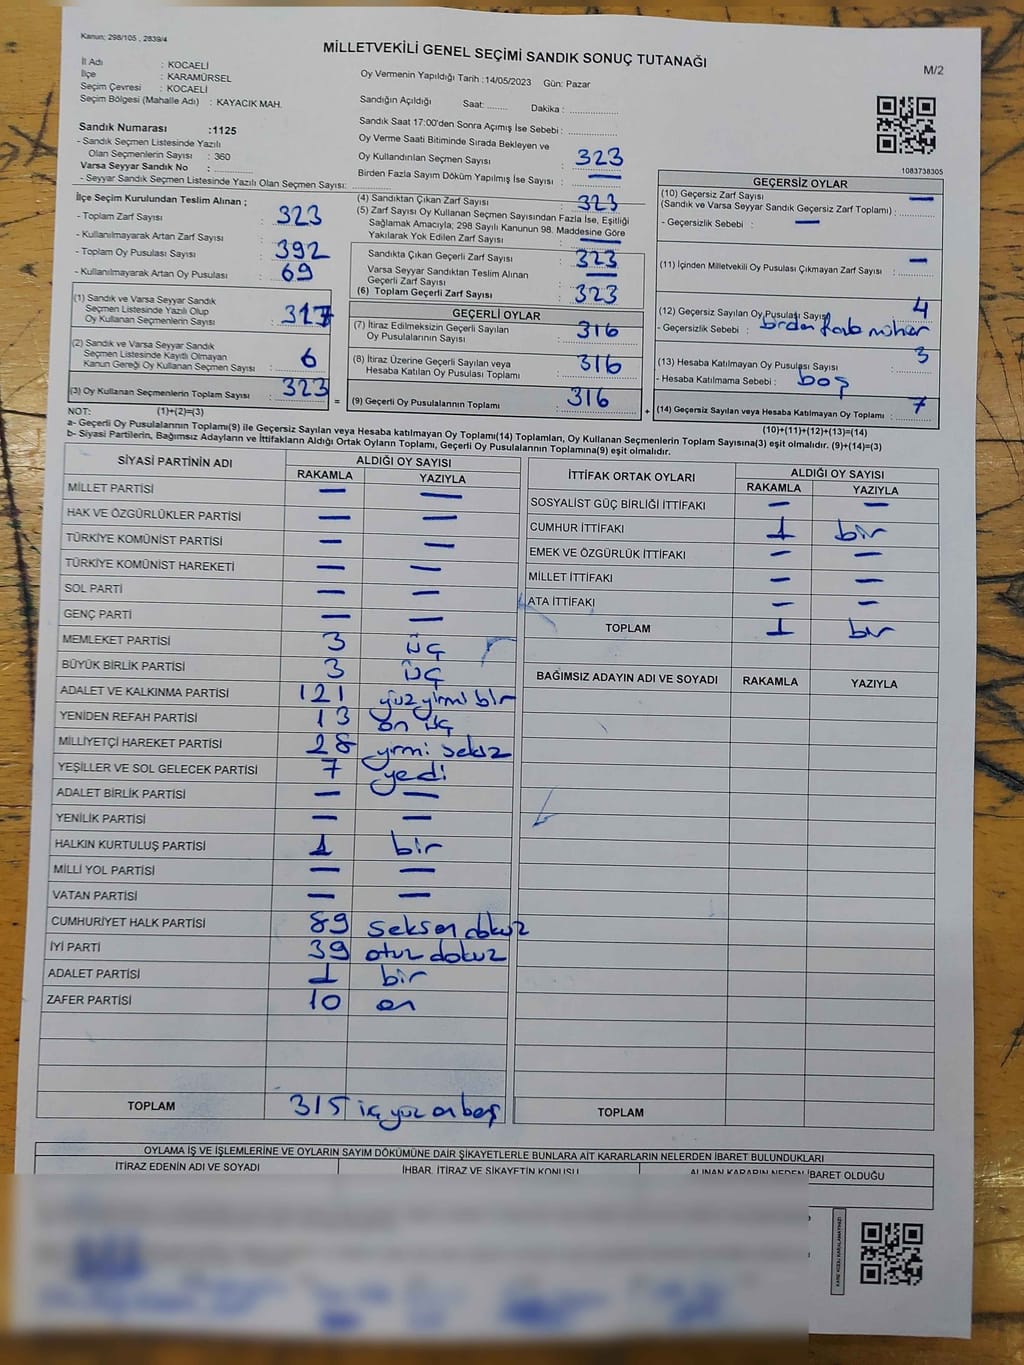 Kanun; 298/105 , 2839/4
MİLLETVEKİLİ GENEL SEÇİMİ SANDIK SONUÇ TUTANAĞI
M/2
İl Adı : KOCAELİ
İlçe : KARAMÜRSEL
Seçim Çevresi : KOCAELİ
Seçim Bölgesi (Mahalle Adı) : KAYACIK MAH.
Sandık Numarası :1125
- Sandık Seçmen Listesinde Yazılı
Olan Seçmenlerin Sayısı : 360
Varsa Seyyar Sandık No :
- Seyyar Sandık Seçmen Listesinde Yazılı Olan Seçmen Sayısı:
Oy Vermenin Yapıldığı Tarih :14/05/2023 Gün: Pazar
Sandığın Açıldığı Saat: ........ Dakika : ..................
Sandık Saat 17:00'den Sonra Açımış İse Sebebi : ..................
Oy Verme Saati Bitiminde Sırada Bekleyen ve
Oy Kullandırılan Seçmen Sayısı : 323
Birden Fazla Sayım Döküm Yapılmış İse Sayısı : —
1083738305
İlçe Seçim Kurulundan Teslim Alınan ;
- Toplam Zarf Sayısı : 323
- Kullanılmayarak Artan Zarf Sayısı :
- Toplam Oy Pusulası Sayısı : 392
- Kullanılmayarak Artan Oy Pusulası : 69
(1) Sandık ve Varsa Seyyar Sandık
Seçmen Listesinde Yazılı Olup
Oy Kullanan Seçmenlerin Sayısı : 317
(2) Sandık ve Varsa Seyyar Sandık
Seçmen Listesinde Kayıtlı Olmayan
Kanun Gereği Oy Kullanan Seçmen Sayısı : 6
(3) Oy Kullanan Seçmenlerin Toplam Sayısı : 323
(4) Sandıktan Çıkan Zarf Sayısı : 323
(5) Zarf Sayısı Oy Kullanan Seçmen Sayısından Fazla İse, Eşitliği
Sağlamak Amacıyla; 298 Sayılı Kanunun 98. Maddesine Göre
Yakılarak Yok Edilen Zarf Sayısı : —
Sandıkta Çıkan Geçerli Zarf Sayısı : 323
Varsa Seyyar Sandıktan Teslim Alınan
Geçerli Zarf Sayısı : —
(6) Toplam Geçerli Zarf Sayısı : 323
GEÇERLİ OYLAR
(7) İtiraz Edilmeksizin Geçerli Sayılan
Oy Pusulalarının Sayısı : 316
(8) İtiraz Üzerine Geçerli Sayılan veya
Hesaba Katılan Oy Pusulası Toplamı : 316
= (9) Geçerli Oy Pusulalarının Toplamı : 316
GEÇERSİZ OYLAR
(10) Geçersiz Zarf Sayısı
(Sandık ve Varsa Seyyar Sandık Geçersiz Zarf Toplamı) : —
- Geçersizlik Sebebi : —
(11) İçinden Milletvekili Oy Pusulası Çıkmayan Zarf Sayısı : —
(12) Geçersiz Sayılan Oy Pusulası Sayısı : 4
- Geçersizlik Sebebi : birden fazla mühür
(13) Hesaba Katılmayan Oy Pusulası Sayısı : 3
- Hesaba Katılmama Sebebi : boş
+ (14) Geçersiz Sayılan veya Hesaba Katılmayan Oy Toplamı : 7
NOT: (1)+(2)=(3)
(10)+(11)+(12)+(13)=(14)
a- Geçerli Oy Pusulalarının Toplamı(9) ile Geçersiz Sayılan veya Hesaba katılmayan Oy Toplamı(14) Toplamları, Oy Kullanan Seçmenlerin Toplam Sayısına(3) eşit olmalıdır. (9)+(14)=(3)
b- Siyasi Partilerin, Bağımsız Adayların ve İttifakların Aldığı Ortak Oyların Toplamı, Geçerli Oy Pusulalarının Toplamına(9) eşit olmalıdır.
SİYASİ PARTİNİN ADI ALDIĞI OY SAYISI
RAKAMLA YAZIYLA
MİLLET PARTİSİ — —
HAK VE ÖZGÜRLÜKLER PARTİSİ — —
TÜRKİYE KOMÜNİST PARTİSİ — —
TÜRKİYE KOMÜNİST HAREKETİ — —
SOL PARTİ — —
GENÇ PARTİ — —
MEMLEKET PARTİSİ 3 üç
BÜYÜK BİRLİK PARTİSİ 3 üç
ADALET VE KALKINMA PARTİSİ 121 yüz yirmi bir
YENİDEN REFAH PARTİSİ 13 on üç
MİLLİYETÇİ HAREKET PARTİSİ 28 yirmi sekiz
YEŞİLLER VE SOL GELECEK PARTİSİ 7 yedi
ADALET BİRLİK PARTİSİ — —
YENİLİK PARTİSİ — —
HALKIN KURTULUŞ PARTİSİ 1 bir
MİLLİ YOL PARTİSİ — —
VATAN PARTİSİ — —
CUMHURİYET HALK PARTİSİ 89 seksen dokuz
İYİ PARTİ 39 otuz dokuz
ADALET PARTİSİ 1 bir
ZAFER PARTİSİ 10 on
TOPLAM 315 üç yüz on beş
İTTİFAK ORTAK OYLARI ALDIĞI OY SAYISI
RAKAMLA YAZIYLA
SOSYALİST GÜÇ BİRLİĞİ İTTİFAKI — —
CUMHUR İTTİFAKI 1 bir
EMEK VE ÖZGÜRLÜK İTTİFAKI — —
MİLLET İTTİFAKI — —
ATA İTTİFAKI — —
TOPLAM 1 bir
BAĞIMSIZ ADAYIN ADI VE SOYADI RAKAMLA YAZIYLA
TOPLAM
OYLAMA İŞ VE İŞLEMLERİNE VE OYLARIN SAYIM DÖKÜMÜNE DAİR ŞİKAYETLERLE BUNLARA AİT KARARLARIN NELERDEN İBARET BULUNDUKLARI
İTİRAZ EDENİN ADI VE SOYADI İHBAR, İTİRAZ VE ŞİKAYETİN KONUSU ALINAN KARARIN NEDEN İBARET OLDUĞU
KARE KODU KARALAMAYINIZ!